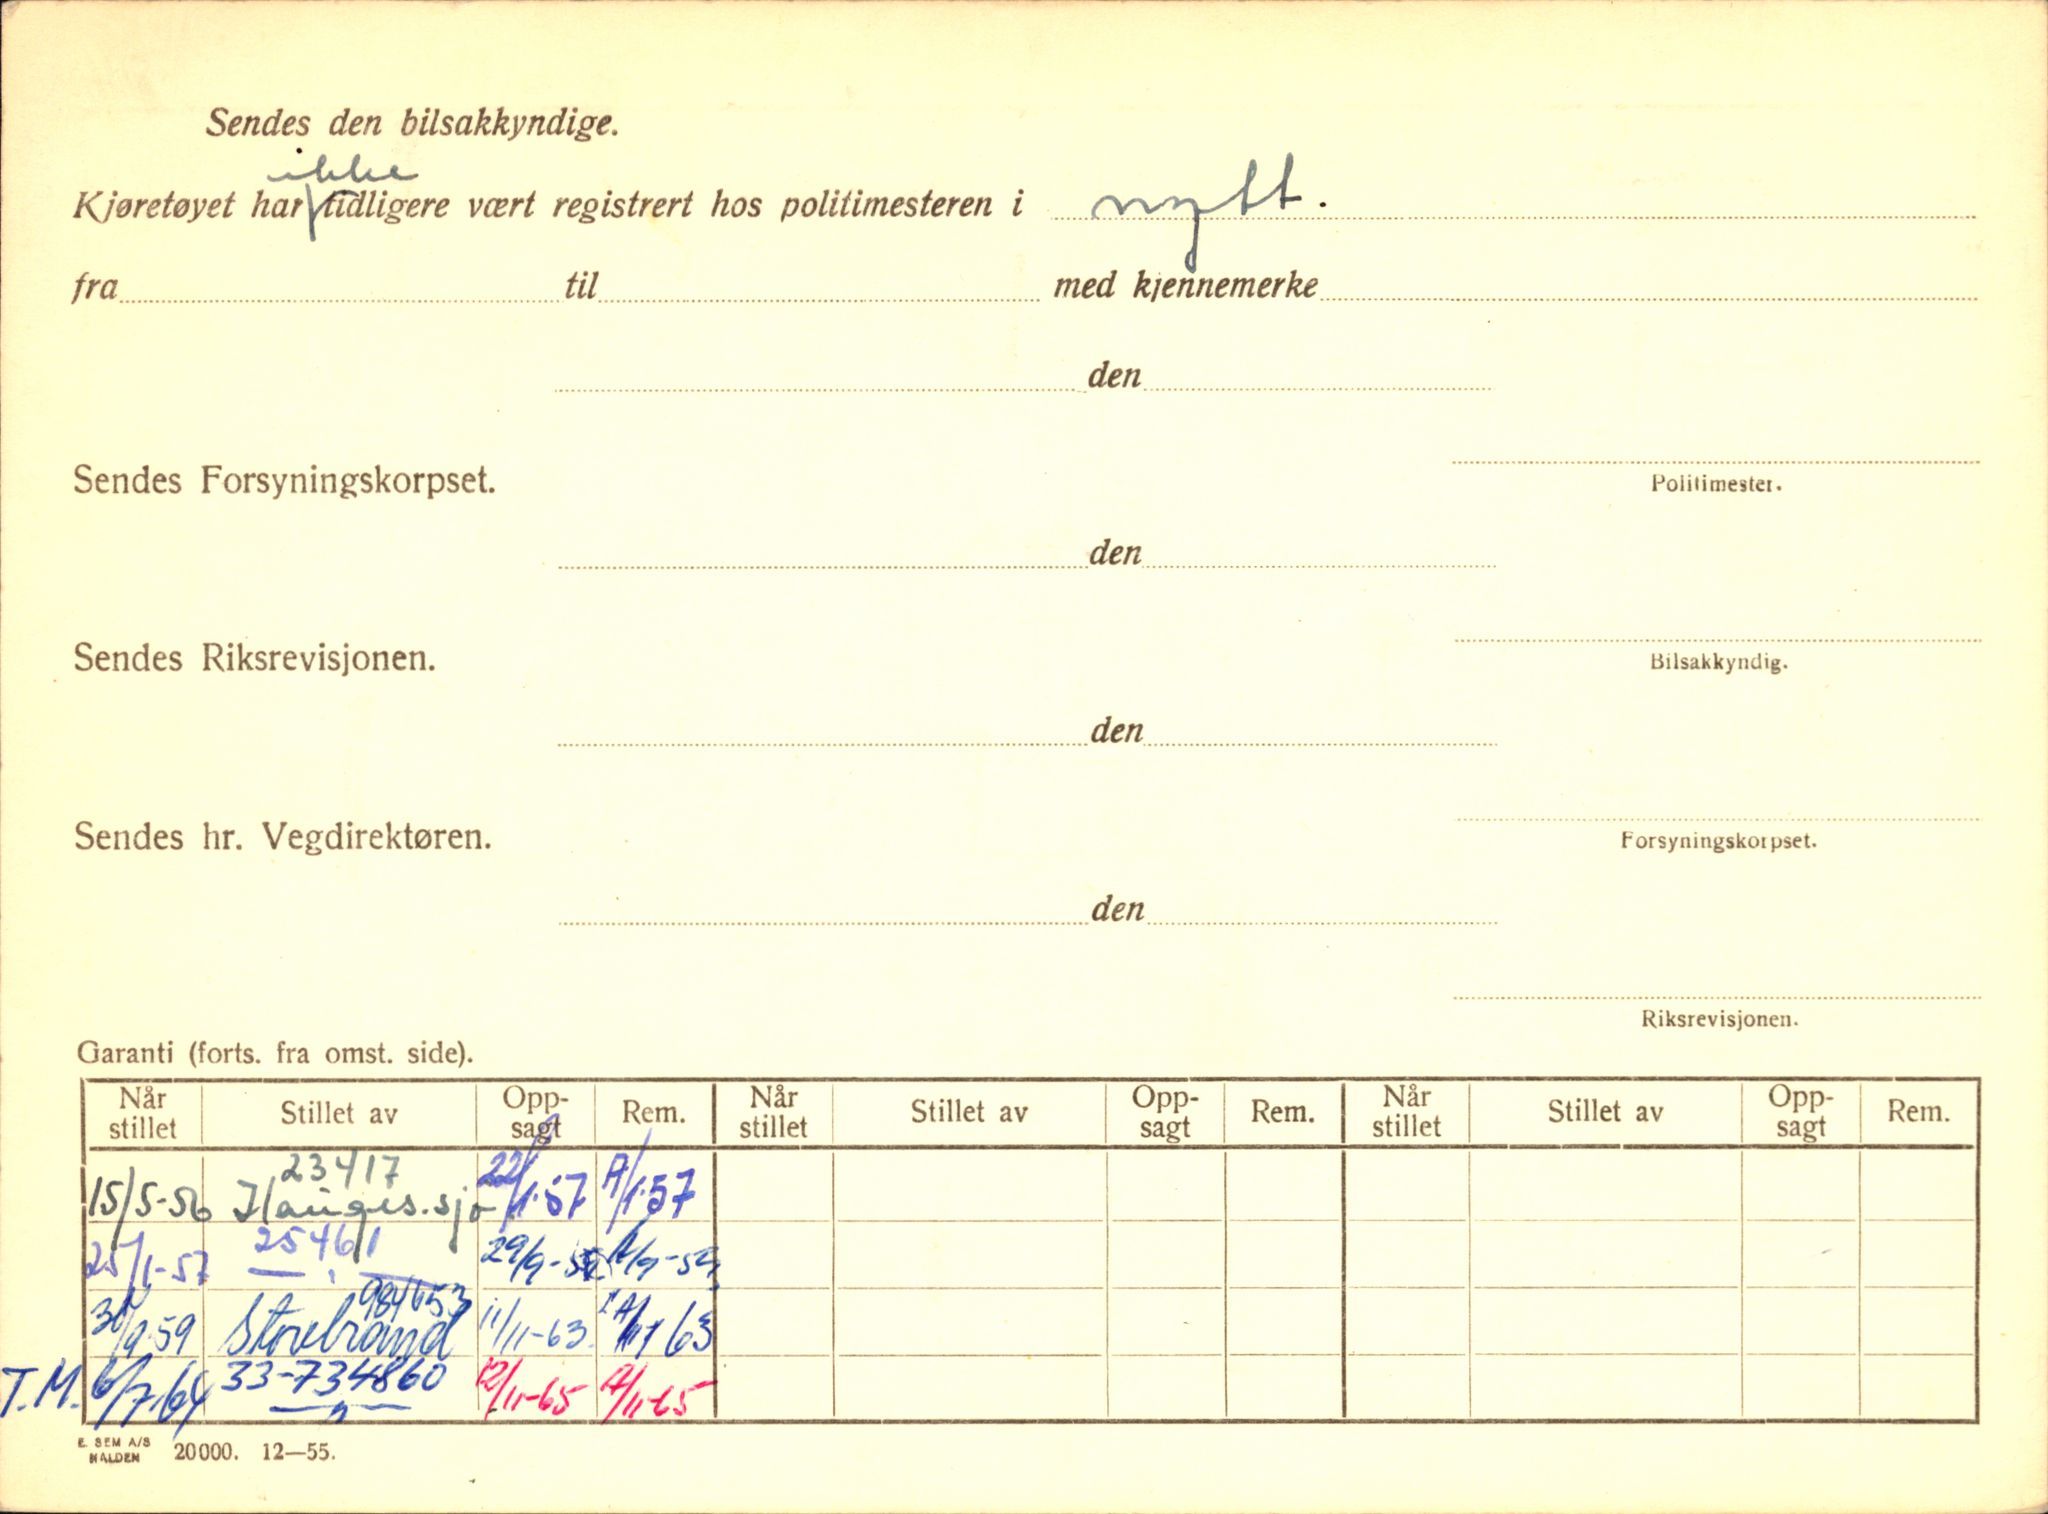 Sendes den bilsakkyndige.
ikke
Kjøretøyet har tidligere vært registrert hos politimesteren i nytt.
fra til med kjennemerke
den
Sendes Forsyningskorpset.
Politimester.
den
Sendes Riksrevisjonen.
Bilsakkyndig.
den
Sendes hr. Vegdirektøren.
Forsyningskorpset.
den
Riksrevisjonen.
Garanti (forts. fra omst. side).
Når stillet Stillet av Opp-sagt Rem. Når stillet Stillet av Opp-sagt Rem. Når stillet Stillet av Opp-sagt Rem.
23417
15/5-56 22/1-57 /1-57
25/1-57 25461 29/9-59 /9-59
984653
/9-59 Storebrand 11/11-63 /11 63
T.M. 6/7-64 33-734860 12/11-65 /11-65
E. SEM A/S
HALDEN 20000. 12—55.